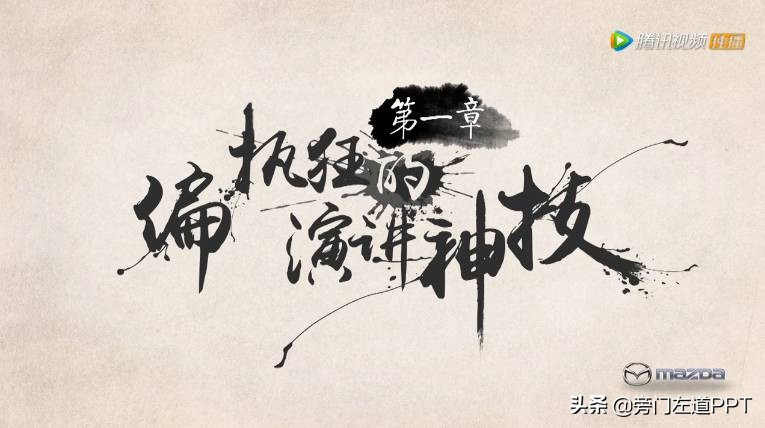 腾讯视频 独播
第一章
偏执狂的
演讲神技
mazda
头条 @旁门左道PPT